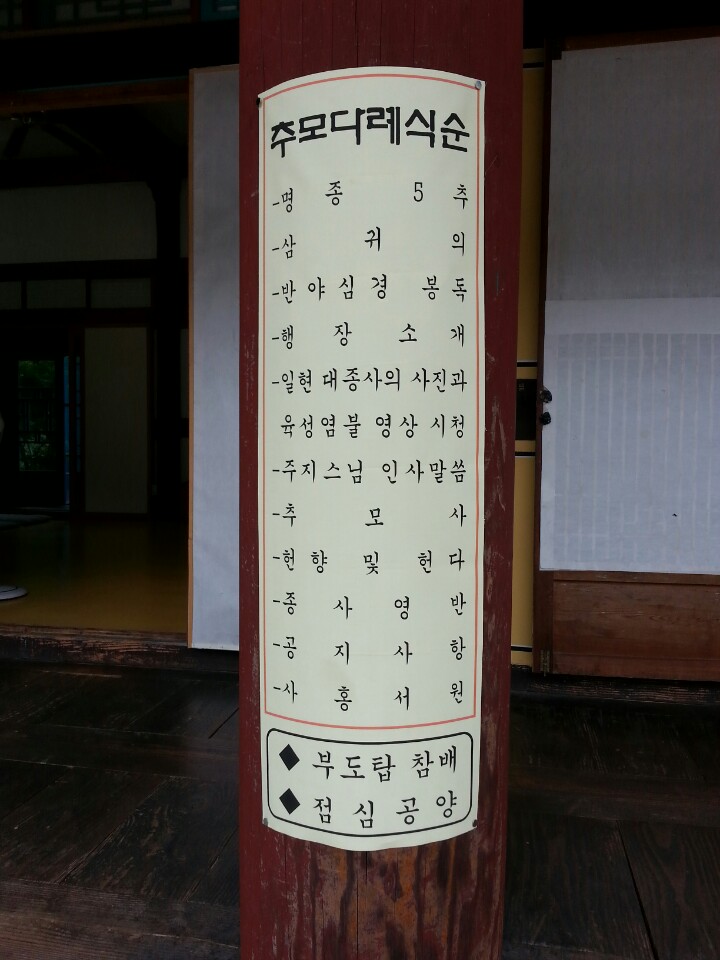 추모다례식순
-명 종 5 추
-삼 귀 의
-반야심경 봉독
-행 장 소 개
-일현 대종사의 사진과
육성염불 영상 시청
-주지스님 인사말씀
-추 모 사
-헌향 및 헌다
-종 사 영 반
-공 지 사 항
-사 홍 서 원
◆ 부도탑 참배
◆ 점심공양